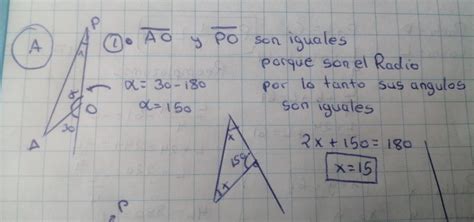 A
P
① AO y PO son iguales
porque son el Radio
por lo tanto sus angulos
son iguales
α = 30 - 180
α = 150
α
O
30
A
x
150
x
2x + 150 = 180
x = 15
P